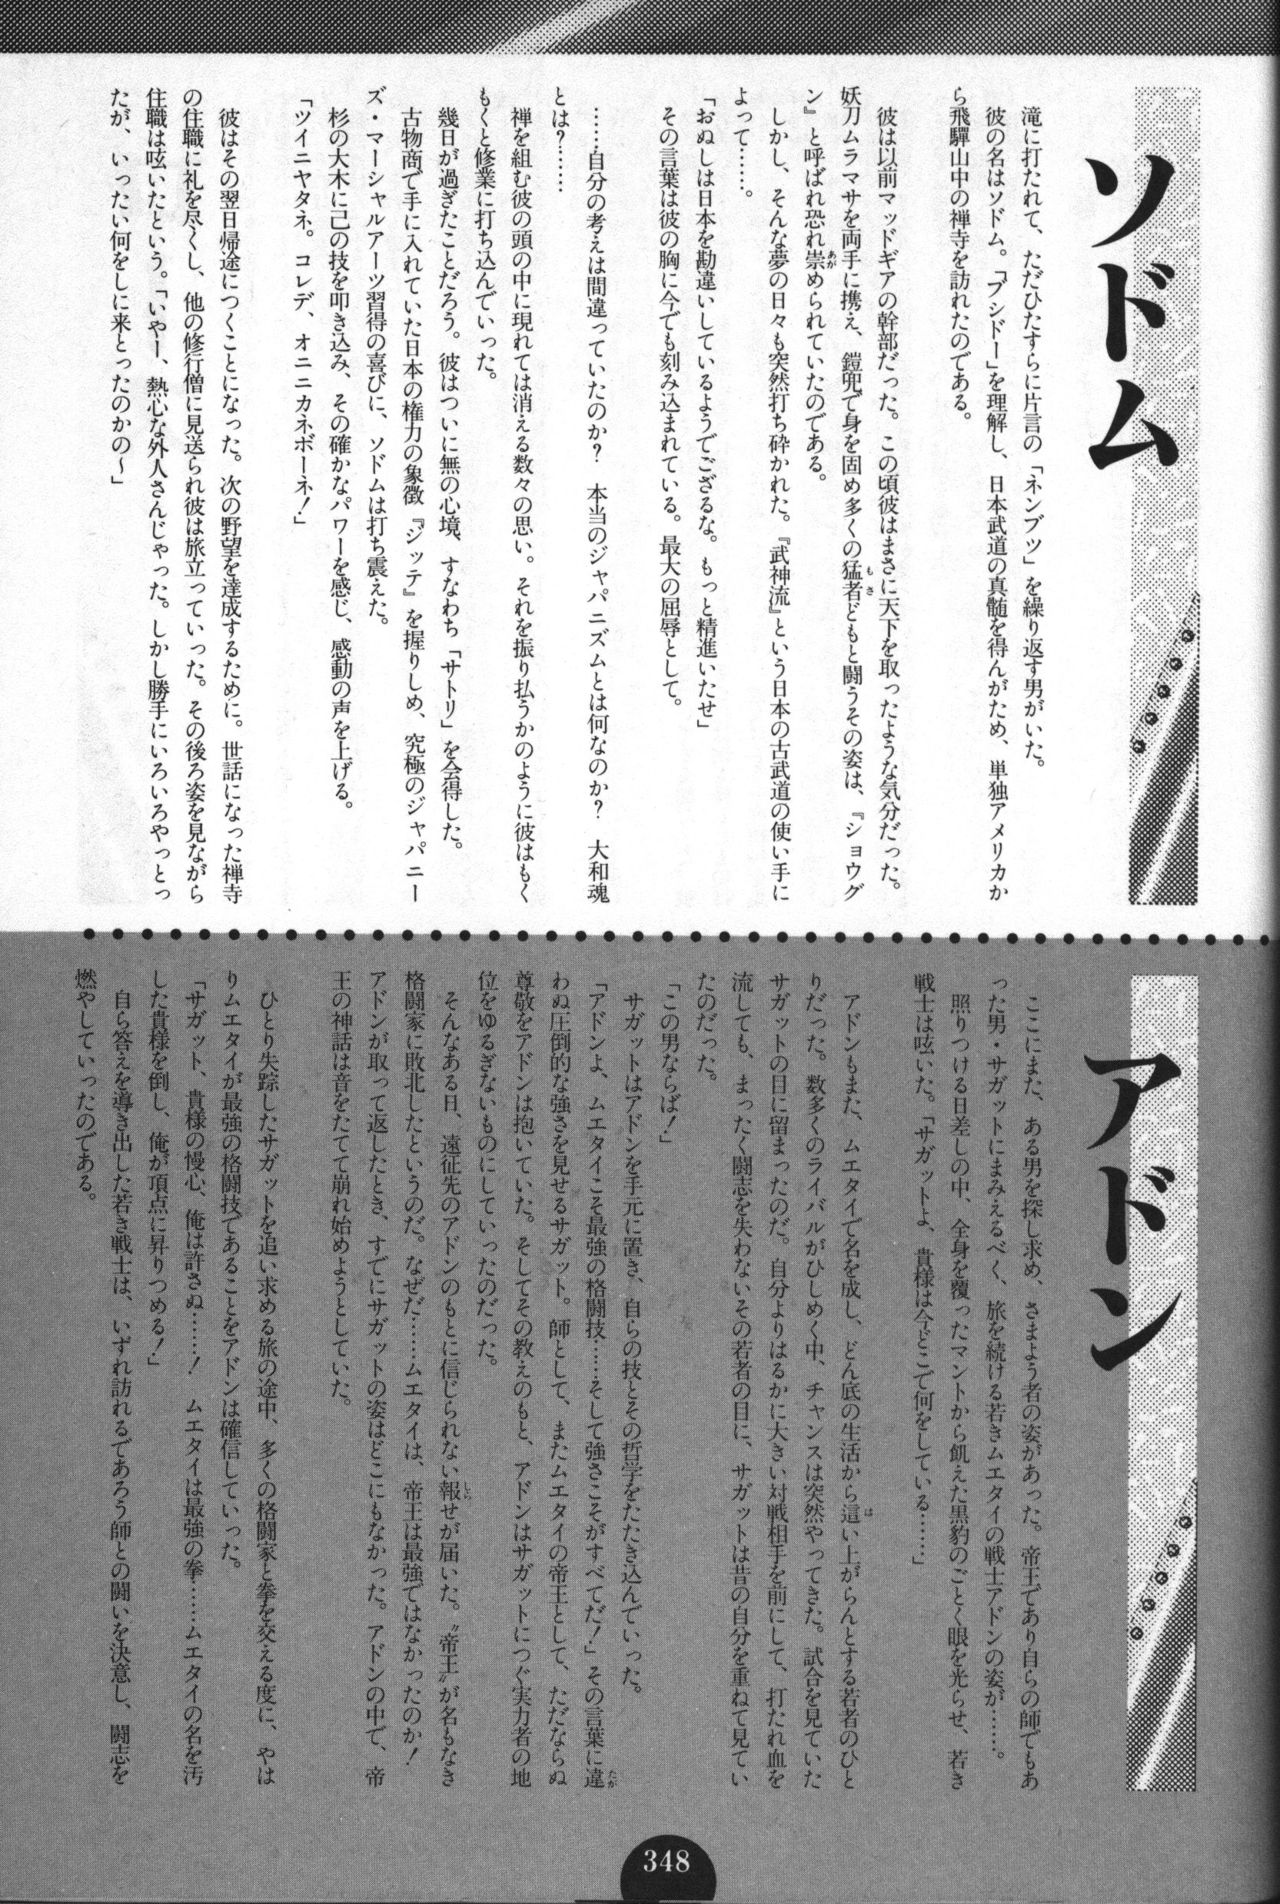 ソドム
滝に打たれて、ただひたすらに片言の「ネンブツ」を繰り返す男がいた。
彼の名はソドム。「ブシドー」を理解し、日本武道の真髄を得んがため、単独アメリカか
ら飛驒山中の禅寺を訪れたのである。
彼は以前マッドギアの幹部だった。この頃彼はまさに天下を取ったような気分だった。
妖刀ムラマサを両手に携え、鎧兜で身を固め多くの猛者どもと闘うその姿は、『ショウグ
ン』と呼ばれ恐れ崇められていたのである。
しかし、そんな夢の日々も突然打ち砕かれた。『武神流』という日本の古武道の使い手に
よって……。
「おぬしは日本を勘違いしているようでござるな。もっと精進いたせ」
その言葉は彼の胸に今でも刻み込まれている。最大の屈辱として。
……自分の考えは間違っていたのか？　本当のジャパニズムとは何なのか？　大和魂
とは？……
禅を組む彼の頭の中に現れては消える数々の思い。それを振り払うかのように彼はもく
もくと修業に打ち込んでいった。
幾日が過ぎたことだろう。彼はついに無の心境、すなわち「サトリ」を会得した。
古物商で手に入れていた日本の権力の象徴『ジッテ』を握りしめ、究極のジャパニー
ズ・マーシャルアーツ習得の喜びに、ソドムは打ち震えた。
杉の大木に己の技を叩き込み、その確かなパワーを感じ、感動の声を上げる。
「ツイニヤタネ。コレデ、オニニカネボーネ！」
彼はその翌日帰途につくことになった。次の野望を達成するために。世話になった禅寺
の住職に礼を尽くし、他の修行僧に見送られ彼は旅立っていった。その後ろ姿を見ながら
住職は呟いたという。「いやー、熱心な外人さんじゃった。しかし勝手にいろいろやっとっ
たが、いったい何をしに来とったのかの〜」
アドン
ここにまた、ある男を探し求め、さまよう者の姿があった。帝王であり自らの師でもあ
った男・サガットにまみえるべく、旅を続ける若きムエタイの戦士アドンの姿が……。
照りつける日差しの中、全身を覆ったマントから飢えた黒豹のごとく眼を光らせ、若き
戦士は呟いた。「サガットよ、貴様は今どこで何をしている……」
アドンもまた、ムエタイで名を成し、どん底の生活から這い上がらんとする若者のひと
りだった。数多くのライバルがひしめく中、チャンスは突然やってきた。試合を見ていた
サガットの目に留まったのだ。自分よりはるかに大きい対戦相手を前にして、打たれ血を
流しても、まったく闘志を失わないその若者の目に、サガットは昔の自分を重ねて見てい
たのだった。
「この男ならば！」
サガットはアドンを手元に置き、自らの技とその哲学をたたき込んでいった。
「アドンよ、ムエタイこそ最強の格闘技……そして強さこそがすべてだ！」その言葉に違
わぬ圧倒的な強さを見せるサガット。師として、またムエタイの帝王として、ただならぬ
尊敬をアドンは抱いていた。そしてその教えのもと、アドンはサガットにつぐ実力者の地
位をゆるぎないものにしていったのだった。
そんなある日、遠征先のアドンのもとに信じられない報せが届いた。〝帝王〟が名もなき
格闘家に敗北したというのだ。なぜだ……ムエタイは、帝王は最強ではなかったのか！
アドンが取って返したとき、すでにサガットの姿はどこにもなかった。アドンの中で、帝
王の神話は音をたてて崩れ始めようとしていた。
ひとり失踪したサガットを追い求める旅の途中、多くの格闘家と拳を交える度に、やは
りムエタイが最強の格闘技であることをアドンは確信していった。
「サガット、貴様の慢心、俺は許さぬ……！　ムエタイは最強の拳……ムエタイの名を汚
した貴様を倒し、俺が頂点に昇りつめる！」
自ら答えを導き出した若き戦士は、いずれ訪れるであろう師との闘いを決意し、闘志を
燃やしていったのである。
348